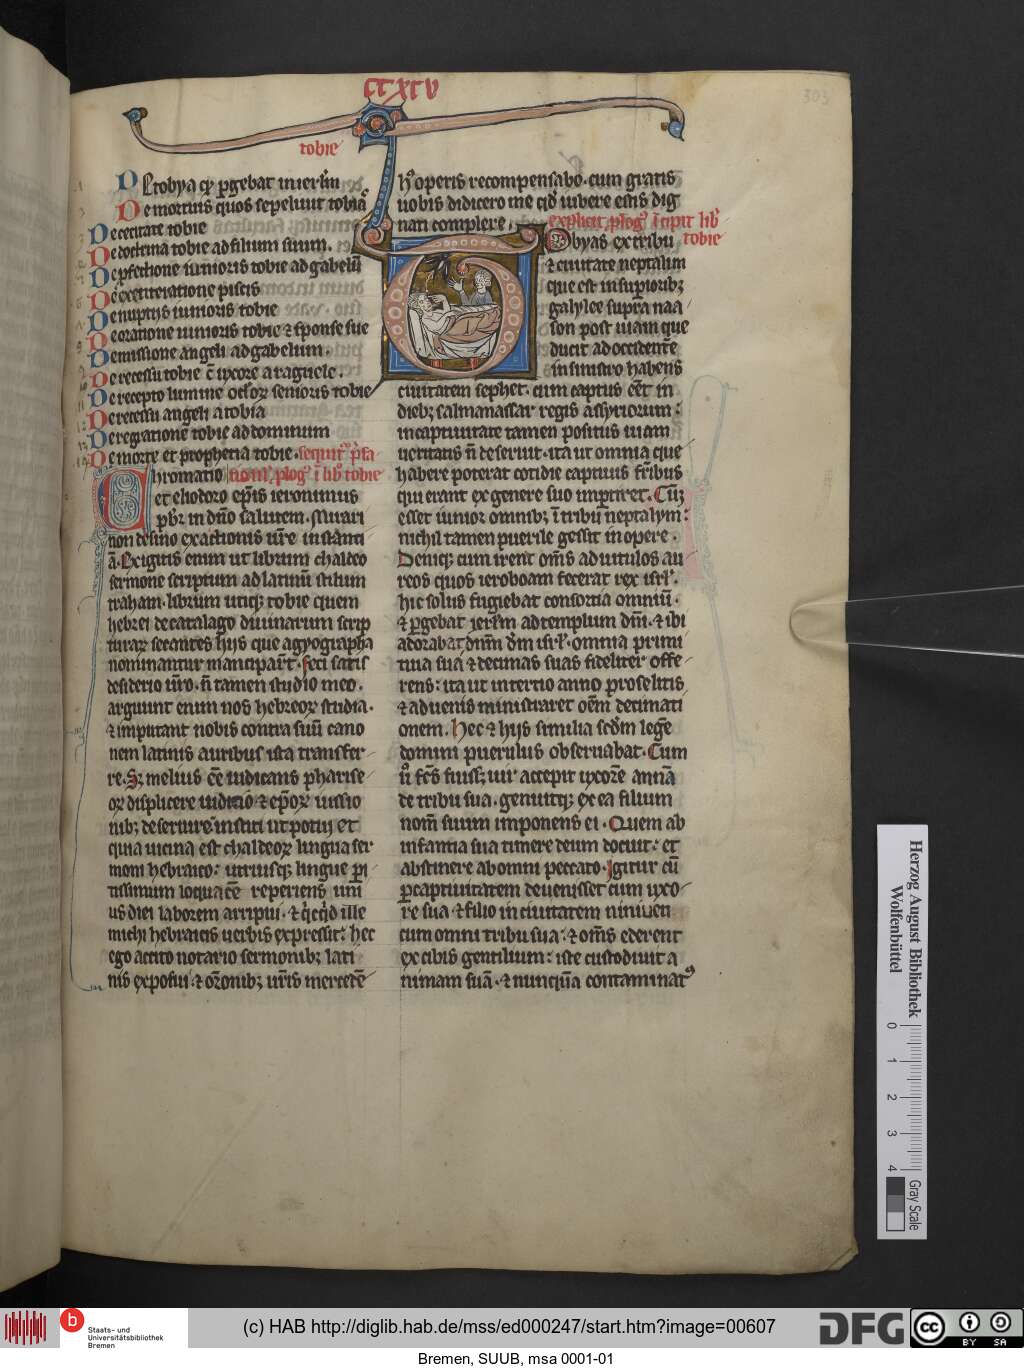 CCXCV
303
tobie
De tobya qͥ pgebat in ierlm̄
De mortuis quos sepeliuit tobias
De cecitate tobie
De doctrina tobie ad filium suum.
De pfectione iunioris tobie ad gabelū
De exenteratione piscis
De nuptiis iunioris tobie
De oratione iunioris tobie ⁊ sponse sue
De missione angeli ad gabelum.
De recessu tobie c̄ uxore a raguele.
De recepto lumine oc̄loꝝ senioris tobie
De recessu angeli a tobia
De regratione tobie ad dominum
De morte et prophetia tobie. sequit͛ p̄fa
Chromatio tionis plog͛ ī lib͛ tobie
et eliodoro ep̄is ieronimus
pb͛r in dn̄o salutem. Mirari
non desino exactionis ur̄e instanti
ā. Exigitis enim ut librum chaldeo
sermone scriptum ad latinū stilum
traham. librum utiqꝫ tobie quem
hebrei de catalago diuinarum scrip
turaꝝ secantes hijs que agyographa
nominantur manciparūt. feci satis
desiderio ur̄o. n̄ tamen studio meo.
arguunt enim nos hebreoꝝ studia.
⁊ imputant nobis contra suū cano
nem latinis auribus ista transfer
re. Sꝫ melius eē iudicans pharise
oꝝ displicere iudicio ⁊ ep̄oꝝ iussio
nibꝫ deseruire institi ut potui et
quia uicina est chaldeoꝝ lingua ser
moni hebraico: utriusqꝫ lingue pi
tissimum loquacē reperiens uni
us diei laborem arripui. ⁊ qͥcqͥd ille
michi hebraicis uerbis expressit: hec
ego accito notario sermonibꝫ lati
nis exposui. ⁊ or̄onibꝫ ur̄is mercedē
h͛ operis recompensabo. cum gratis
uobis didicero me qd̄ iubere estis dig
nati complere. explicit plog͛ Incipit lib͛
Thobyas ex tribu tobie
⁊ ciuitate neptalim
que est in supioribꝫ
galylee supra naa
son post uiam que
ducit ad occidentē
in sinistro habens
ciuitatem sephet. cum captus eēt in
diebꝫ salmanassar regis assyriorum:
in captiuitate tamen positus uiam
ueritatis n̄ deseruit. ita ut omnia que
habere poterat cotidie captiuis fr̄ibus
qui erant ex genere suo imptiret. Cūꝫ
esset iunior omnibꝫ ī tribu neptalym:
nichil tamen puerile gessit in opere.
Deniqꝫ cum irent om̄s ad uitulos au
reos quos ieroboam fecerat rex isrl̄.
hic solus fugiebat consortia omniū.
⁊ pgebat ierl̄m ad templum dn̄i. ⁊ ibi
adorabat dn̄m dm̄ isrl̄. omnia primi
tiua sua ⁊ decimas suas fideliter offe
rens: ita ut in tertio anno proselitis
⁊ aduenis ministraret oēm decimati
onem. Hec ⁊ hijs similia scd̄m legē
domini puerulus obseruabat. Cum
u͛ fc̄s fuissꝫ uir accepit uxorē annā
de tribu sua. genuitqꝫ ex ea filium
nom̄ suum imponens ei. Quem ab
infantia sua timere deum docuit: et
abstinere ab omni peccato. Igitur cū
p captiuitatem deuenisset cum uxo
re sua ⁊ filio in ciuitatem niniuen
cum omni tribu sua: ⁊ om̄s ederent
ex cibis gentilium: iste custodiuit a
nimam suā. ⁊ nunqūa contaminat͛
Herzog August Bibliothek
Wolfenbüttel
0 1 2 3 4
Gray Scale
b Staats- und
Universitätsbibliothek
Bremen
(c) HAB http://diglib.hab.de/mss/ed000247/start.htm?image=00607
DFG
cc BY SA
Bremen, SUUB, msa 0001-01